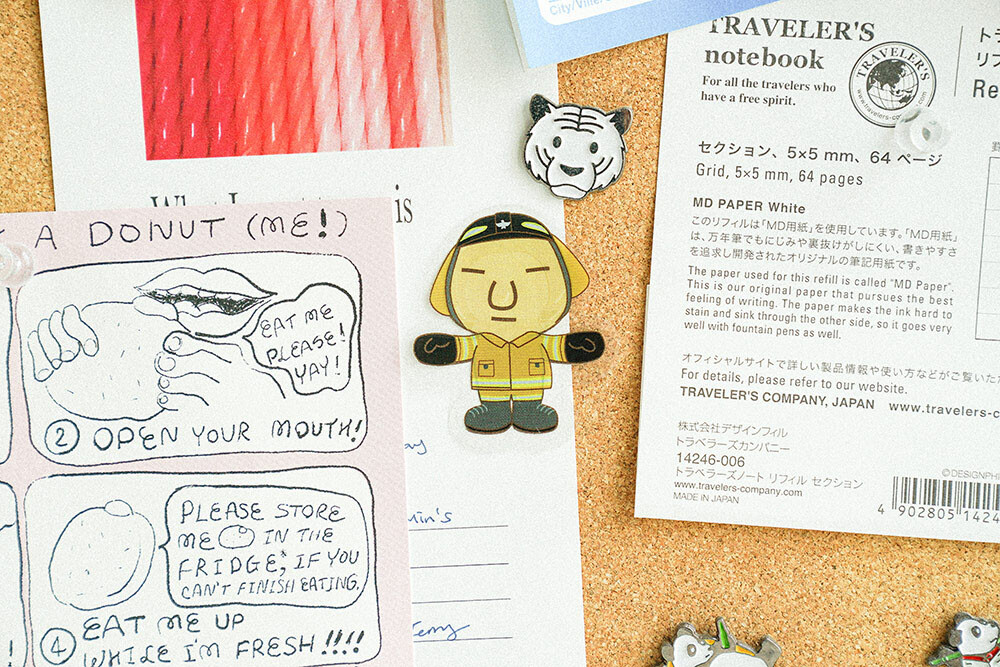 TRAVELER'S
notebook
For all the travelers who
have a free spirit.
TRAVELER'S
セクション、5×5 mm、64 ページ
Grid, 5×5 mm, 64 pages
MD PAPER White
このリフィルは「MD用紙」を使用しています。「MD用紙」
は、万年筆でもにじみや裏抜けがしにくい、書きやすさ
を追求し開発されたオリジナルの筆記用紙です。
The paper used for this refill is called "MD Paper".
This is our original paper that pursues the best
feeling of writing. The paper makes the ink hard to
stain and sink through the other side, so it goes very
well with fountain pens as well.
オフィシャルサイトで詳しい製品情報や使い方などがご覧いた
For details, please refer to our website.
TRAVELER'S COMPANY, JAPAN www.travelers-c
株式会社デザインフィル
トラベラーズカンパニー
14246-006
トラベラーズノート リフィル セクション
www.travelers-company.com
MADE IN JAPAN
©DESIGNPHI
4 902805 1424
ト
リフ
Re
City/
is
A DONUT (ME!)
EAT ME
PLEASE!
YAY!
2 OPEN YOUR MOUTH!
PLEASE STORE
ME IN THE
FRIDGE*, IF YOU
CAN'T FINISH EATING.
4 EAT ME UP
WHILE I'M FRESH!!!!